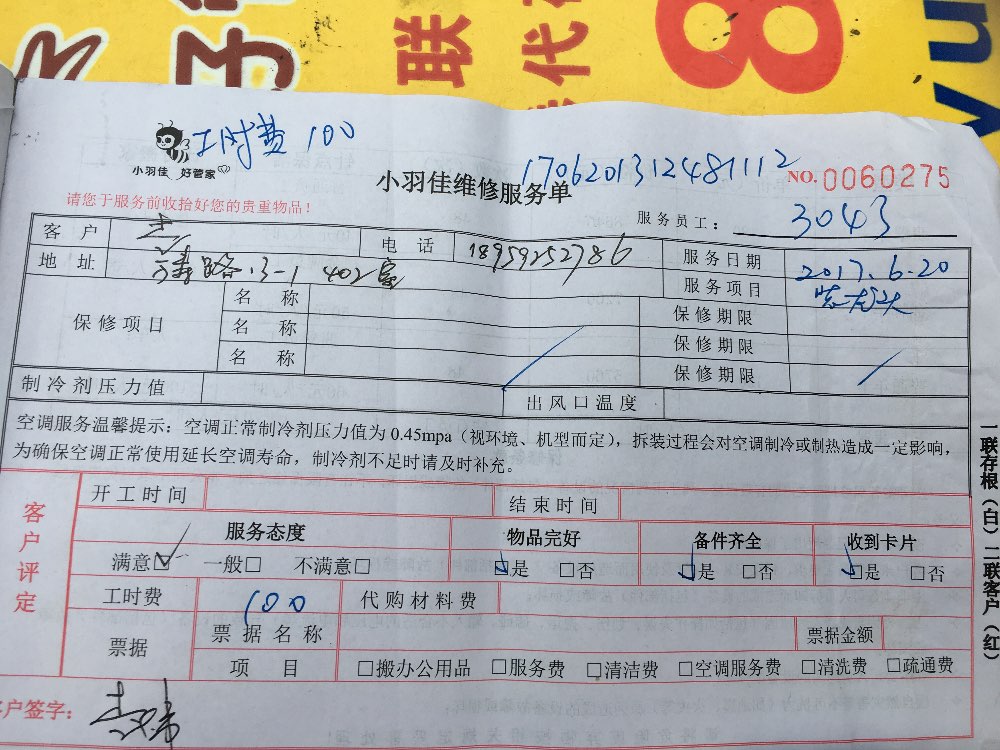 联
代
8
yu
工时费 100
小羽佳 好管家
1706201312481112
小羽佳维修服务单
NO. 0060275
请您于服务前收拾好您的贵重物品！
服务员工： 3043
客户 电话 18959252786 服务日期 2017.6.20
地址 路.13-1 402室 服务项目
保修项目 名称 保修期限
名称 保修期限
名称 保修期限
制冷剂压力值 出风口温度
空调服务温馨提示：空调正常制冷剂压力值为 0.45mpa（视环境、机型而定），拆装过程会对空调制冷或制热造成一定影响，
为确保空调正常使用延长空调寿命，制冷剂不足时请及时补充。
一联存根（白）二联客户（红）
客户评定
开工时间 结束时间
服务态度 物品完好 备件齐全 收到卡片
满意☑ 一般□ 不满意□ ☑是 □否 ☑是 □否 ☑是 □否
工时费 100 代购材料费
票据 票据名称 票据金额
项目 □搬办公用品 □服务费 □清洁费 □空调服务费 □清洗费 □疏通费
客户签字：